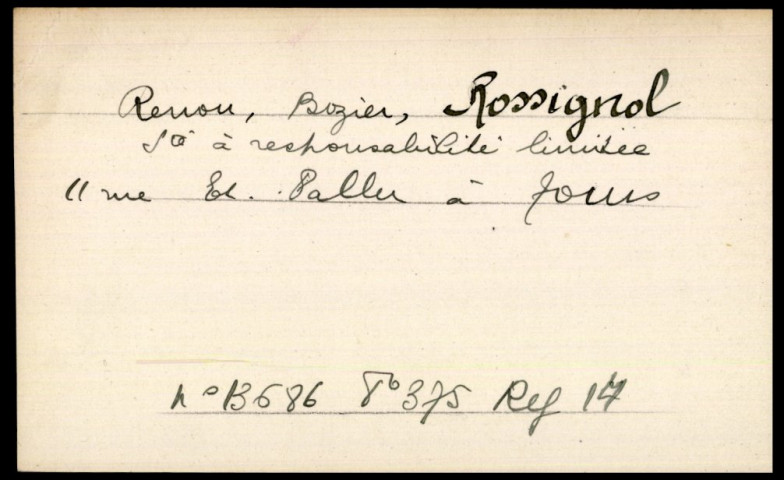 Renou, Bozier, Rossignol
Sté à responsabilité limitée
11 rue Et. Pallu à Tours
n° B686 F° 375 Reg 17